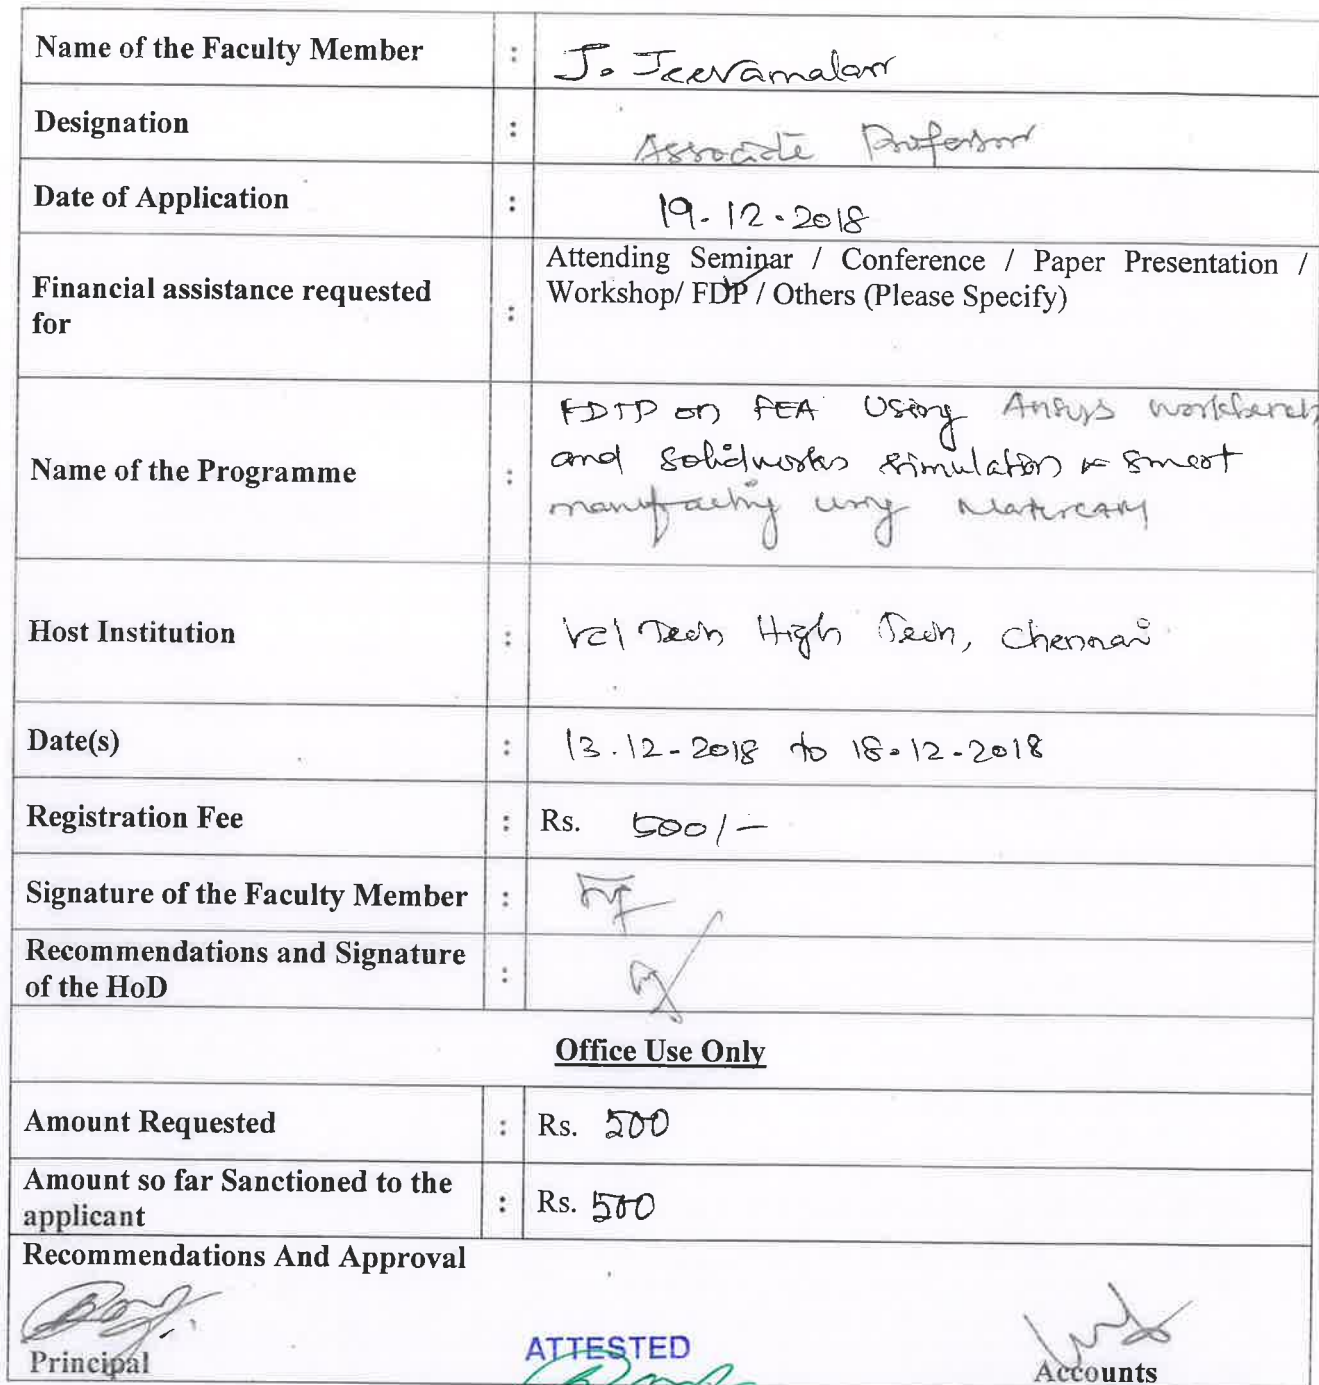 Name of the Faculty Member : J. Jeevamalar
Designation : Associate Professor
Date of Application : 19.12.2018
Financial assistance requested for : Attending Seminar / Conference / Paper Presentation /
Workshop/ FDP / Others (Please Specify)
Name of the Programme : FDTP on FEA Using Ansys workbench
and Solidworks simulation & smart
manufacturing using MasterCAM
Host Institution : Vel Tech High Tech, Chennai
Date(s) : 13.12-2018 to 18.12-2018
Registration Fee : Rs. 500/-
Signature of the Faculty Member :
Recommendations and Signature
of the HoD :
Office Use Only
Amount Requested : Rs. 500
Amount so far Sanctioned to the
applicant : Rs. 500
Recommendations And Approval
ATTESTED
Principal Accounts